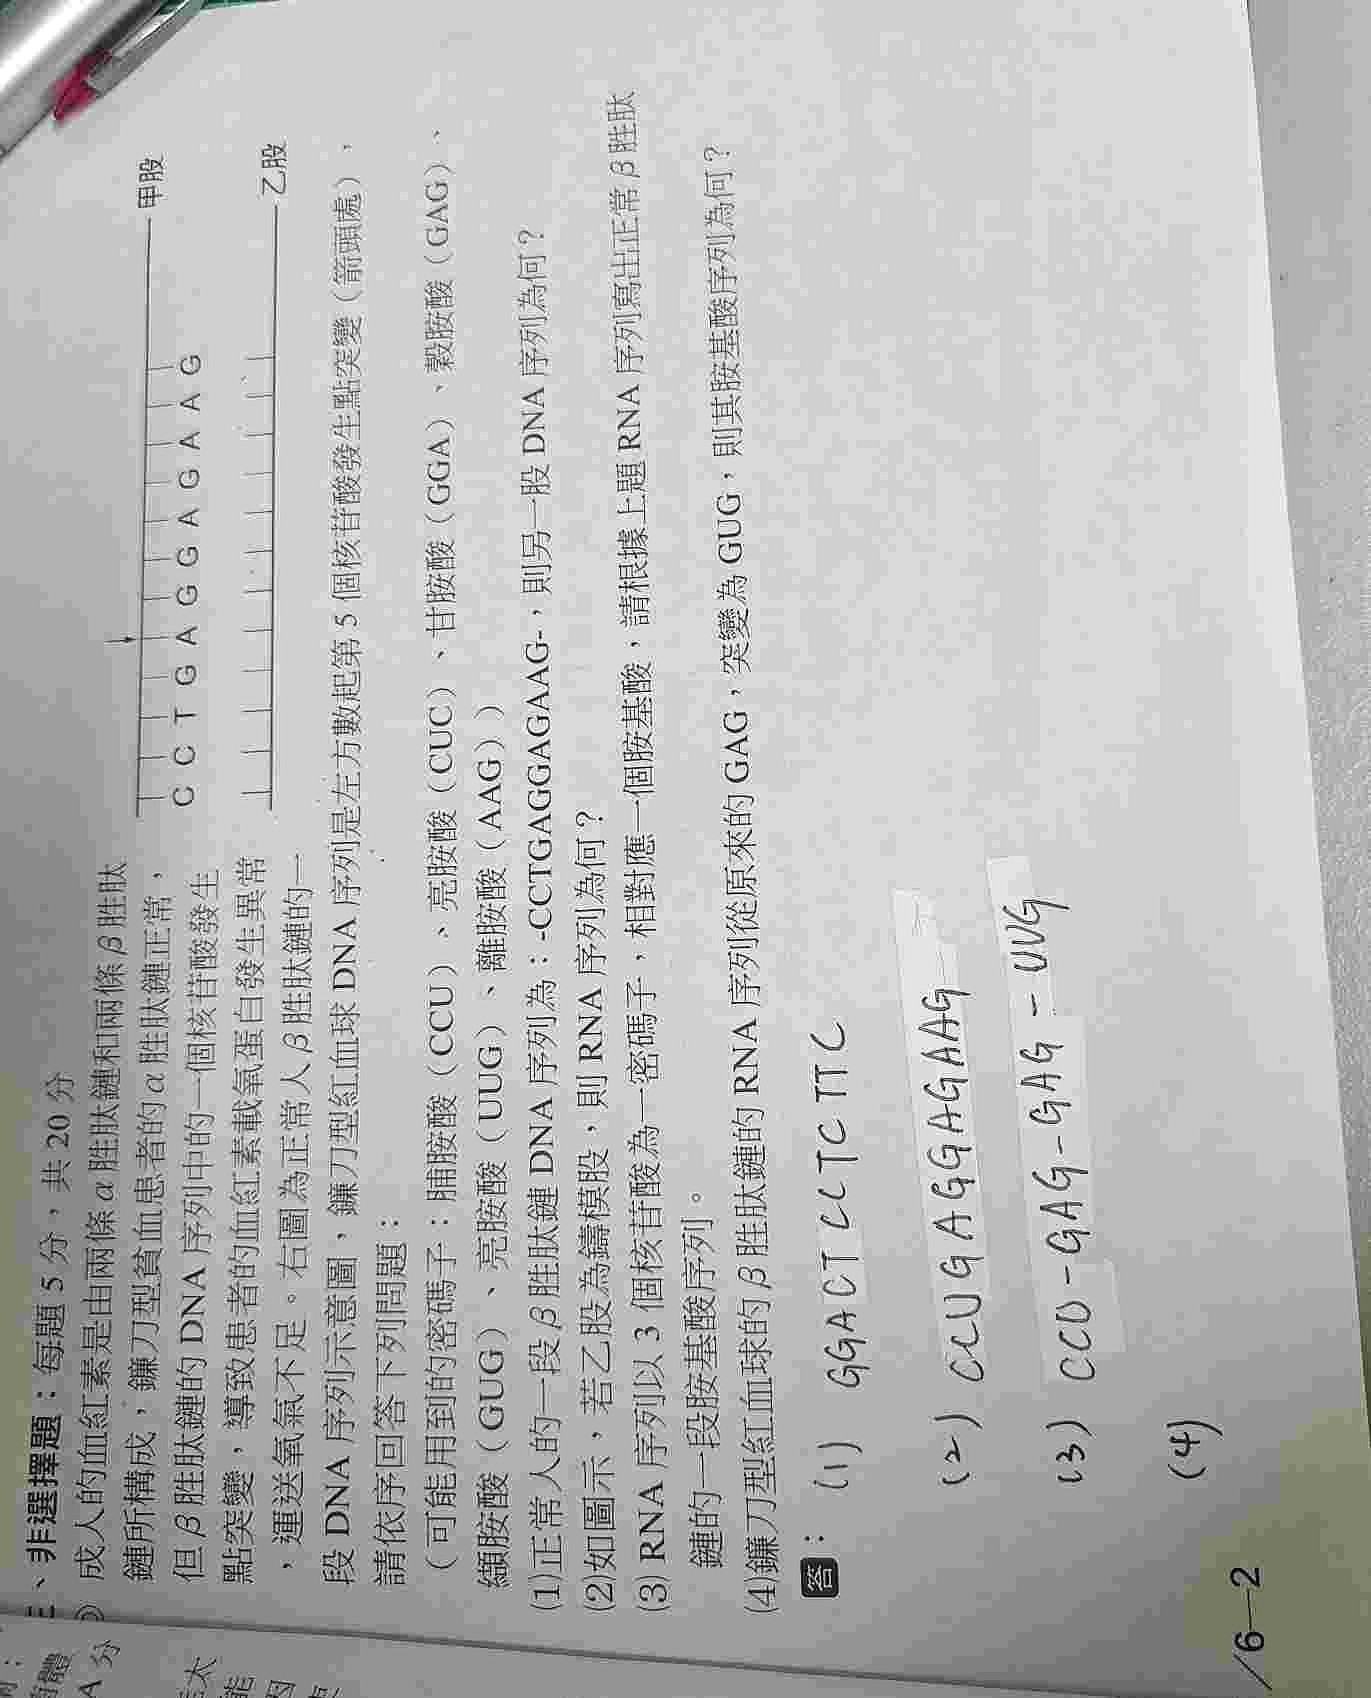 三、非選擇題：每題 5 分，共 20 分
成人的血紅素是由兩條 α 胜肽鏈和兩條 β 胜肽
鏈所構成，鐮刀型貧血患者的 α 胜肽鏈正常，
但 β 胜肽鏈的 DNA 序列中的一個核苷酸發生
點突變，導致患者的血紅素載氧蛋白發生異常
，運送氧氣不足。右圖為正常人 β 胜肽鏈的一
段 DNA 序列示意圖，鐮刀型紅血球 DNA 序列是左方數起第 5 個核苷酸發生點突變（箭頭處），
請依序回答下列問題：
甲股
C C T G A G G A G A A G
乙股
（可能用到的密碼子：脯胺酸（CCU）、亮胺酸（CUC）、甘胺酸（GGA）、穀胺酸（GAG）、
纈胺酸（GUG）、亮胺酸（UUG）、離胺酸（AAG））
(1)正常人的一段 β 胜肽鏈 DNA 序列為：-CCTGAGGAGAAG-，則另一股 DNA 序列為何？
(2)如圖示，若乙股為鑄模股，則 RNA 序列為何？
(3) RNA 序列以 3 個核苷酸為一密碼子，相對應一個胺基酸，請根據上題 RNA 序列寫出正常 β 胜肽
鏈的一段胺基酸序列。
(4)鐮刀型紅血球的 β 胜肽鏈的 RNA 序列從原來的 GAG，突變為 GUG，則其胺基酸序列為何？
答：
(1) GGACTCCTCTTC
(2) CCUGAGGAGAAG
(3) CCU-GAG-GAG-UUG
(4)
/6—2